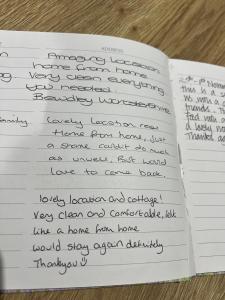 ADDRESS
Amazing Location
home from home
Very clean everything
you needed.
Bewdley Worcestershire
Lovely Location
Home from home, just
a shame couldn't do much
as unwell, But would
love to come back.
lovely location and cottage!
Very clean and comfortable, felt
like a home from home
would stay again definitely
Thankyou
this is a